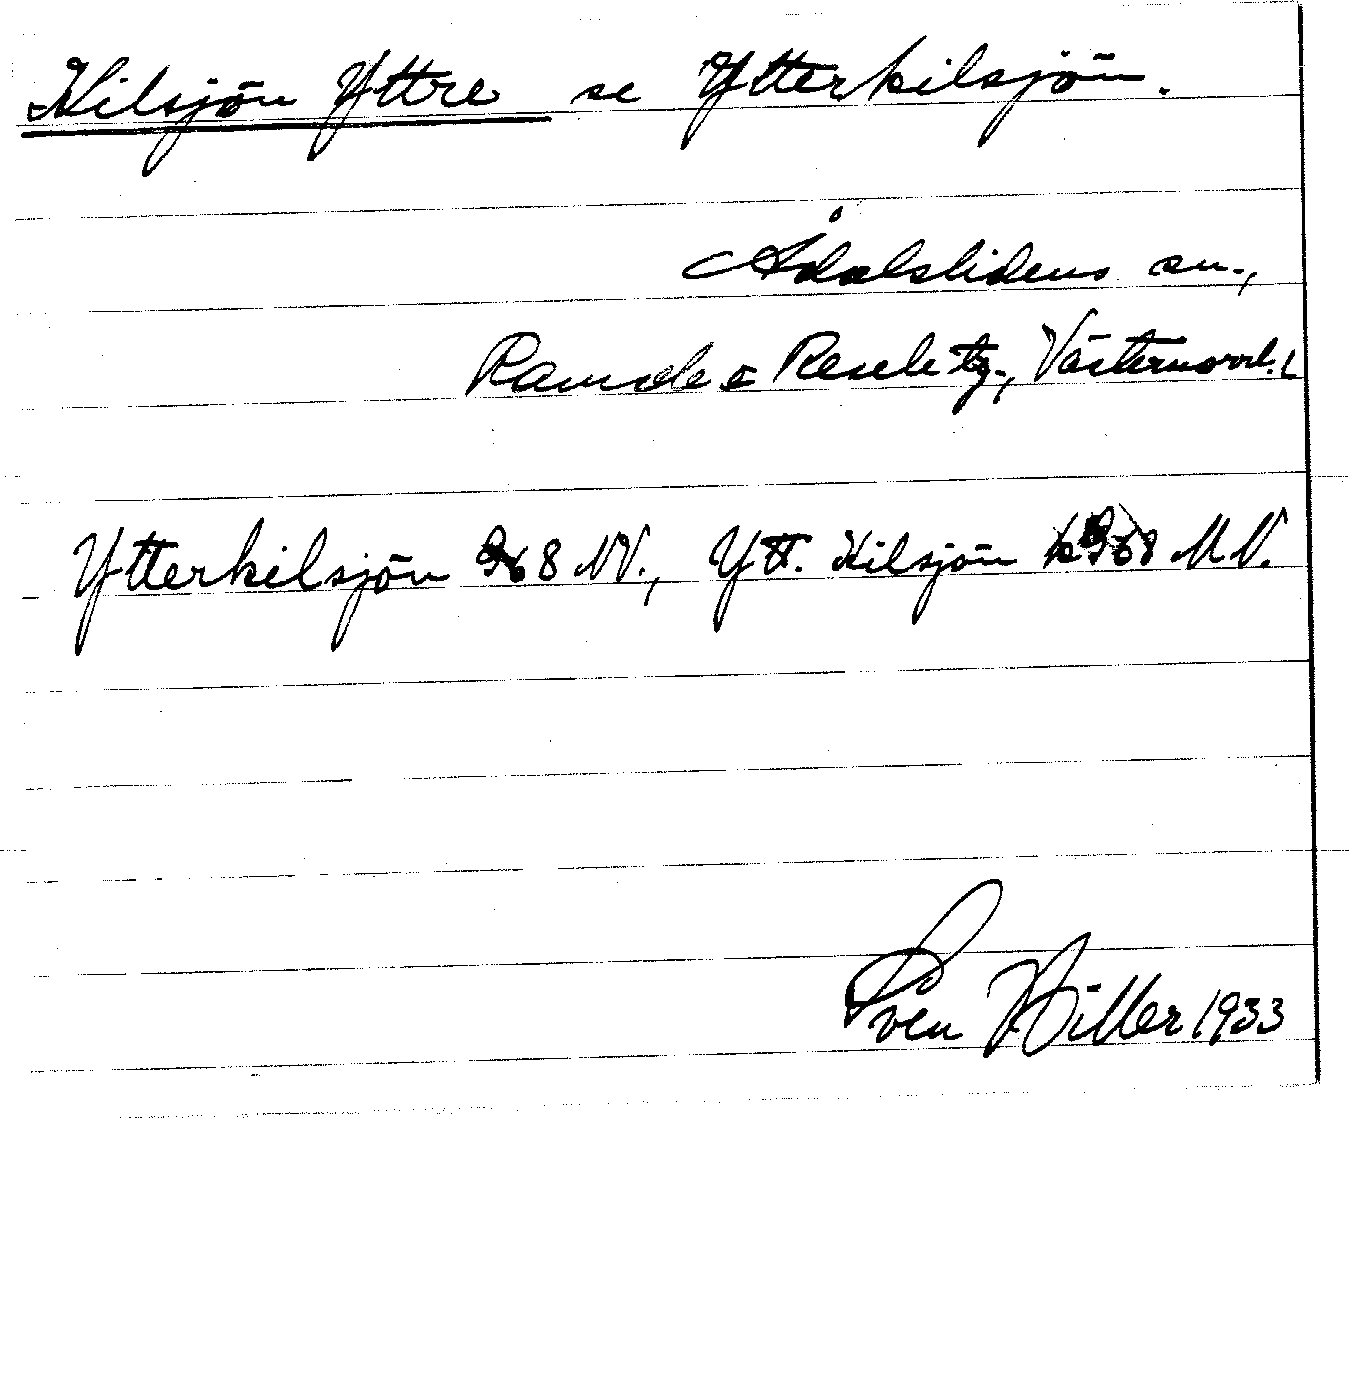 Kilsjön Yttre se Ytterkilsjön.
Ådalslidens sn.,
Ramsele o Resele tg., Västernorrl. L
Ytterkilsjön 968 NV., Ytt. Kilsjön 968 NV.
Sven Hiller 1933